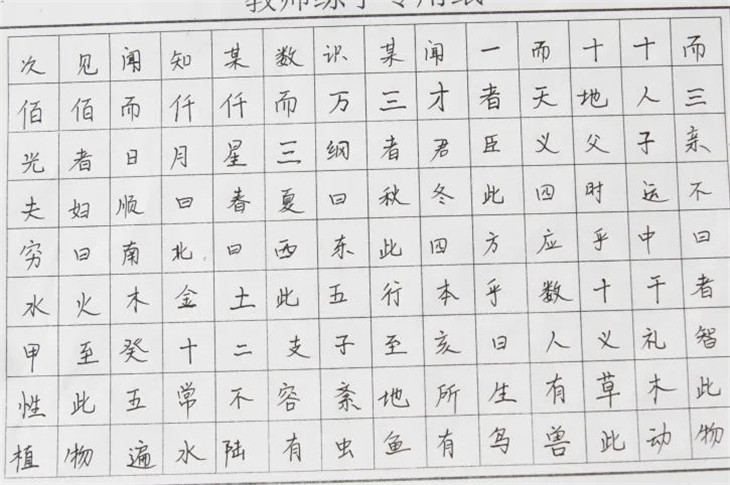 教师练字专用纸
次见闻知某数识某闻一而十十而
佰佰而仟仟而万三才者天地人三
光者日月星三纲者君臣义父子亲
夫妇顺曰春夏曰秋冬此四时运不
穷曰南北曰西东此四方应乎中曰
水火木金土此五行本乎数十干者
甲至癸十二支子至亥曰人义礼智
性此五常不容紊地所生有草木此
植物遍水陆有虫鱼有鸟兽此动物